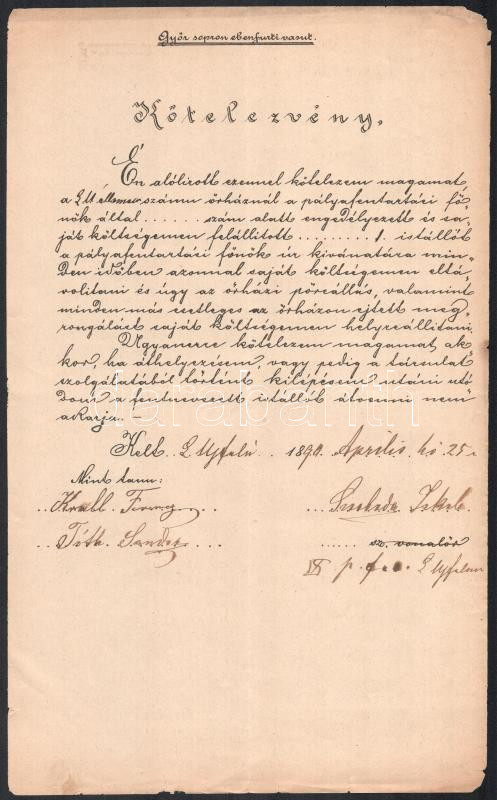 Győr sopron ebenfurti vasut.
Kötelezvény.
Én alólirott ezennel kötelezem magamat,
a számu őrháznál a pályafentartási fő-
nök által ...... szám alatt engedélyezett és sa-
ját költségemen felállitott ........ 1. istállót
a pályafentartási főnök úr kivánatára min-
den időben azonnal saját költségemen eltá-
volitani és úgy az őrházi pöreállás, valamint
minden más esetleges az őrházon ejtett meg-
rongálást saját költségemen helyreállitani.
Ugyanerre kötelezem magamat, ak-
kor, ha áthelyezésem, vagy pedig a társulat
szolgálatából történt kilépésem utáni utó
dom a fentnevezett istállót átvenni nem
akarja. -
Kelt L Ujfalú 1890. Április hó 25
Mint tanu:
.. Krall Ferencz
... Jakab
.. Tóth Sandor ...
...... sz. vonalőr
IX p. f. L Ujfalun
darabanth